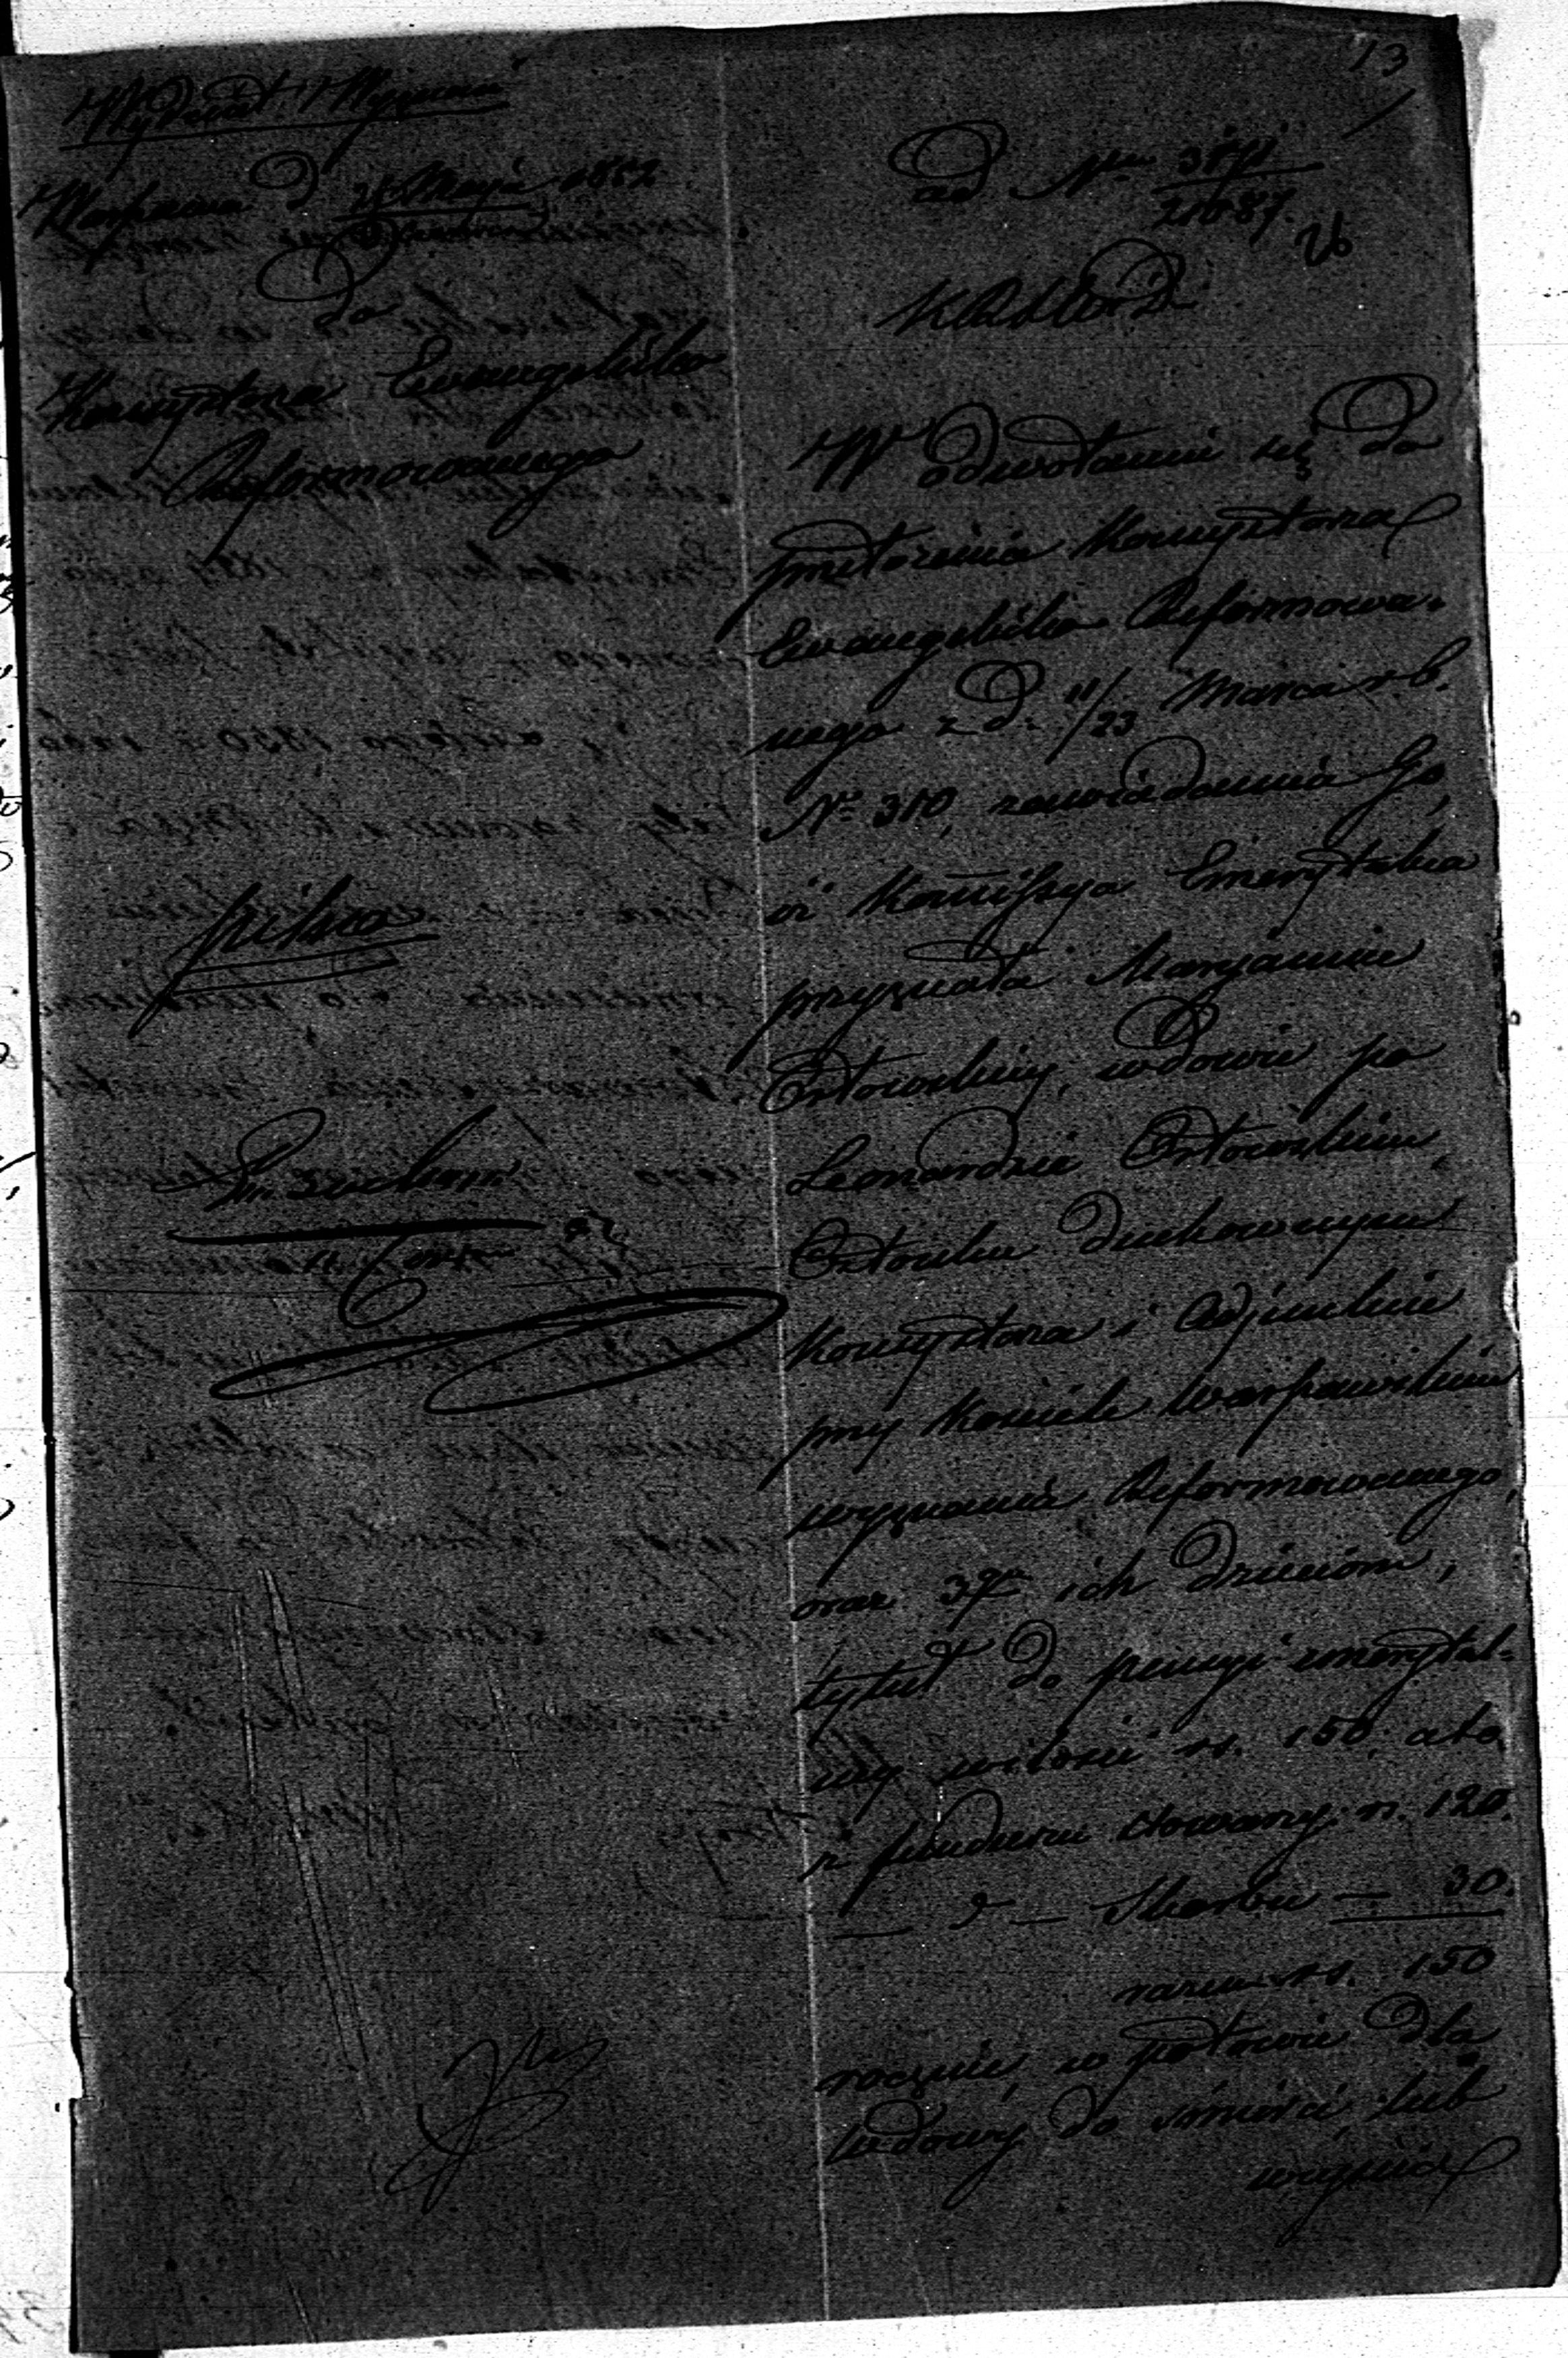 13
Wydział Wyznań
Warszawa d 1852
do
Konsystorza Ewangelicko
Reformowanego
pilno
ad Nru
21087.
W odwołaniu się do
przełożenia Konsystorza
Ewangelicko Reformowa-
nego z d. 11/23 Marca r. b.
Nr 310, zawiadamia Go,
iż Kommissya Emerytalna
przyznała Maryannie
wdowie po
Leonardzie
Członku Duchownym
Konsystorza i Adjunkcie
przy Kościele Warszawskim
wyznania Reformowanego,
oraz 3ga ich dzieciom,
tytuł do pensyi emerytal-
nej w ilości rs. 150. a to,
z funduszu stowarzy: rs. 120.
— d — Skarbu — 30.
razem rs. 150
rocznie, w połowie dla
wdowy do śmierci lub
wyjścia